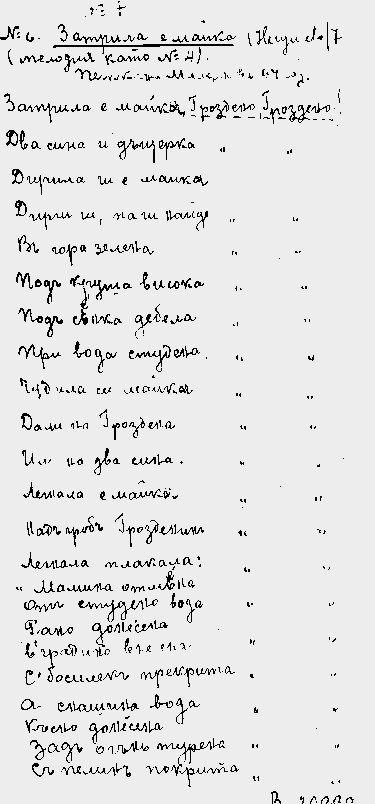 № 6. Затрила е майка
(мелодия като № 4).
Затрила е майка, Гроздено, Гроздено!
Два сина и дъщерка " "
Дирила ги е майка
Дири ги, на ги найде " "
Въ гора зелена " "
Подъ круша висока " "
Подъ сѣнка дебела " "
При вода студена. " "
Чудила се майка " "
Дали на Гроздена " "
Или на два сина. " "
Легнала е майка. " "
Надъ гробъ Грозденинъ " "
Легнала плакала: " "
" Мамина отмѣна
Отъ студено вода " "
Рано донесена " "
В градина
С' босилекъ прекрита " "
А снашина вода " "
Късно донесена
Задъ огънь турена " "
Съ пелинъ покрита " "